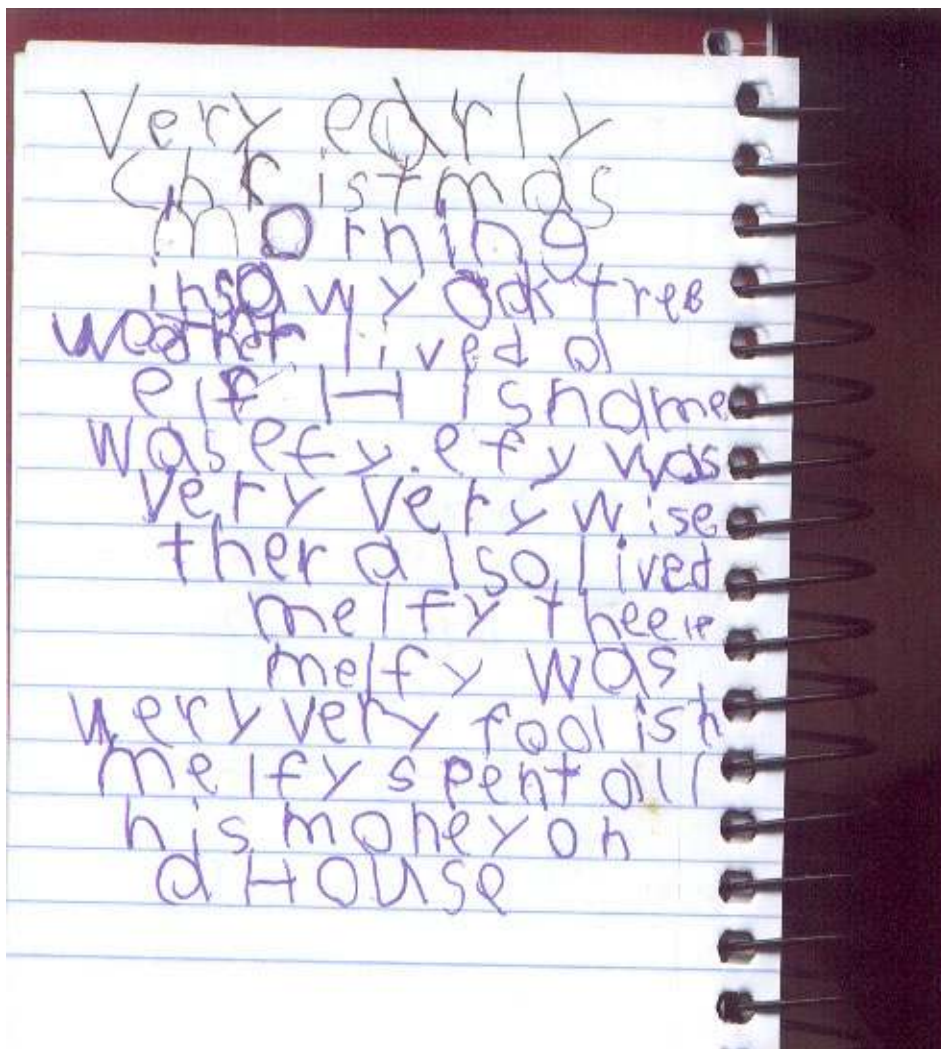 Very early
Christmas
morning
in a wy oak tree
lived a
elf His name
was efy. efy was
very very wise
ther also lived
melfy the
melfy was
very very foolish
melfy spent all
his money on
a House